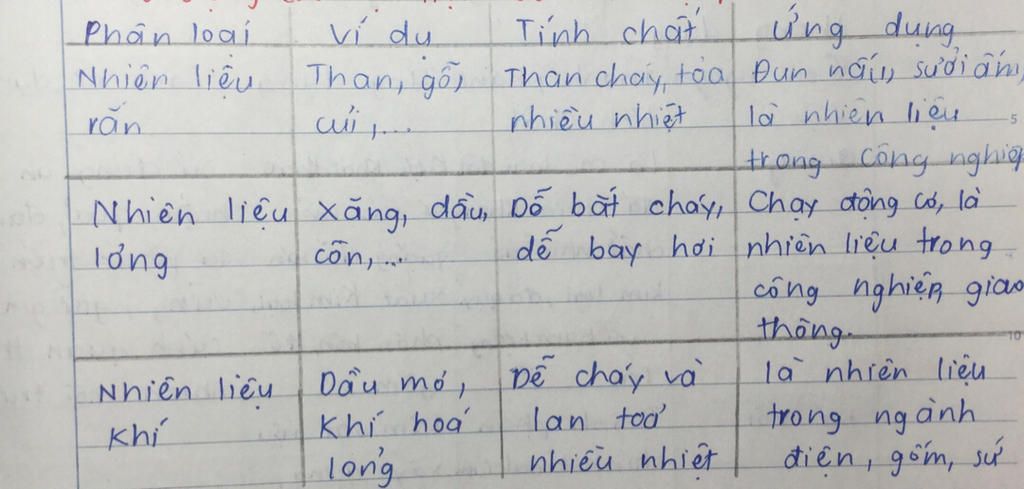 Phân loại Ví dụ Tính chất Ứng dụng
Nhiên liệu Than, gỗ, Than cháy, tỏa Đun nấu, sưởi ấm,
rắn củi,... nhiều nhiệt là nhiên liệu
trong công nghiệp
Nhiên liệu Xăng, dầu, Dố bắt cháy, Chạy động cơ, là
lỏng cồn,... dễ bay hơi nhiên liệu trong
công nghiệp, giao
thông.
Nhiên liệu Dầu mỏ, Dễ cháy và là nhiên liệu
khí Khí hoá lan toả trong ngành
lỏng nhiều nhiệt điện, gốm, sứ